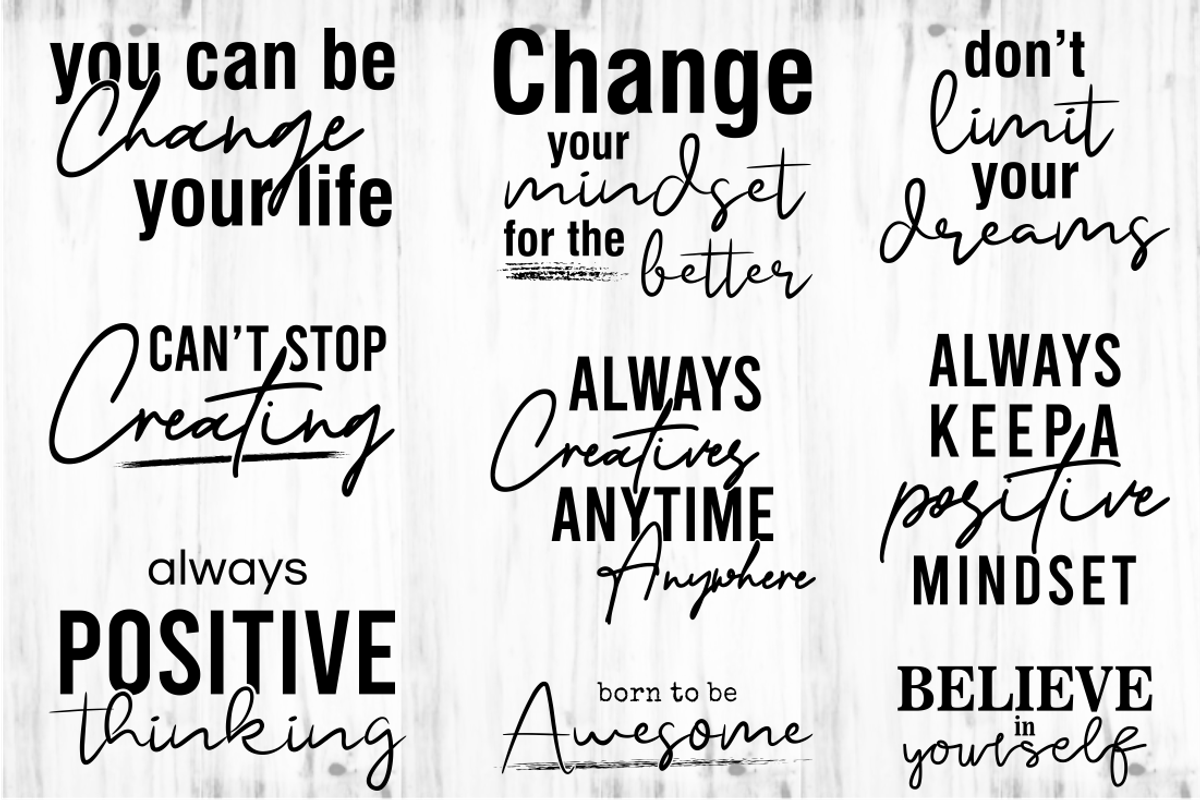 you can be
Change
your life
Change
your
mindset
for the
better
don't
limit
your
dreams
CAN'T STOP
Creating
ALWAYS
Creatives
ANYTIME
Anywhere
ALWAYS
KEEP A
positive
MINDSET
always
POSITIVE
thinking
born to be
Awesome
BELIEVE
in
yourself